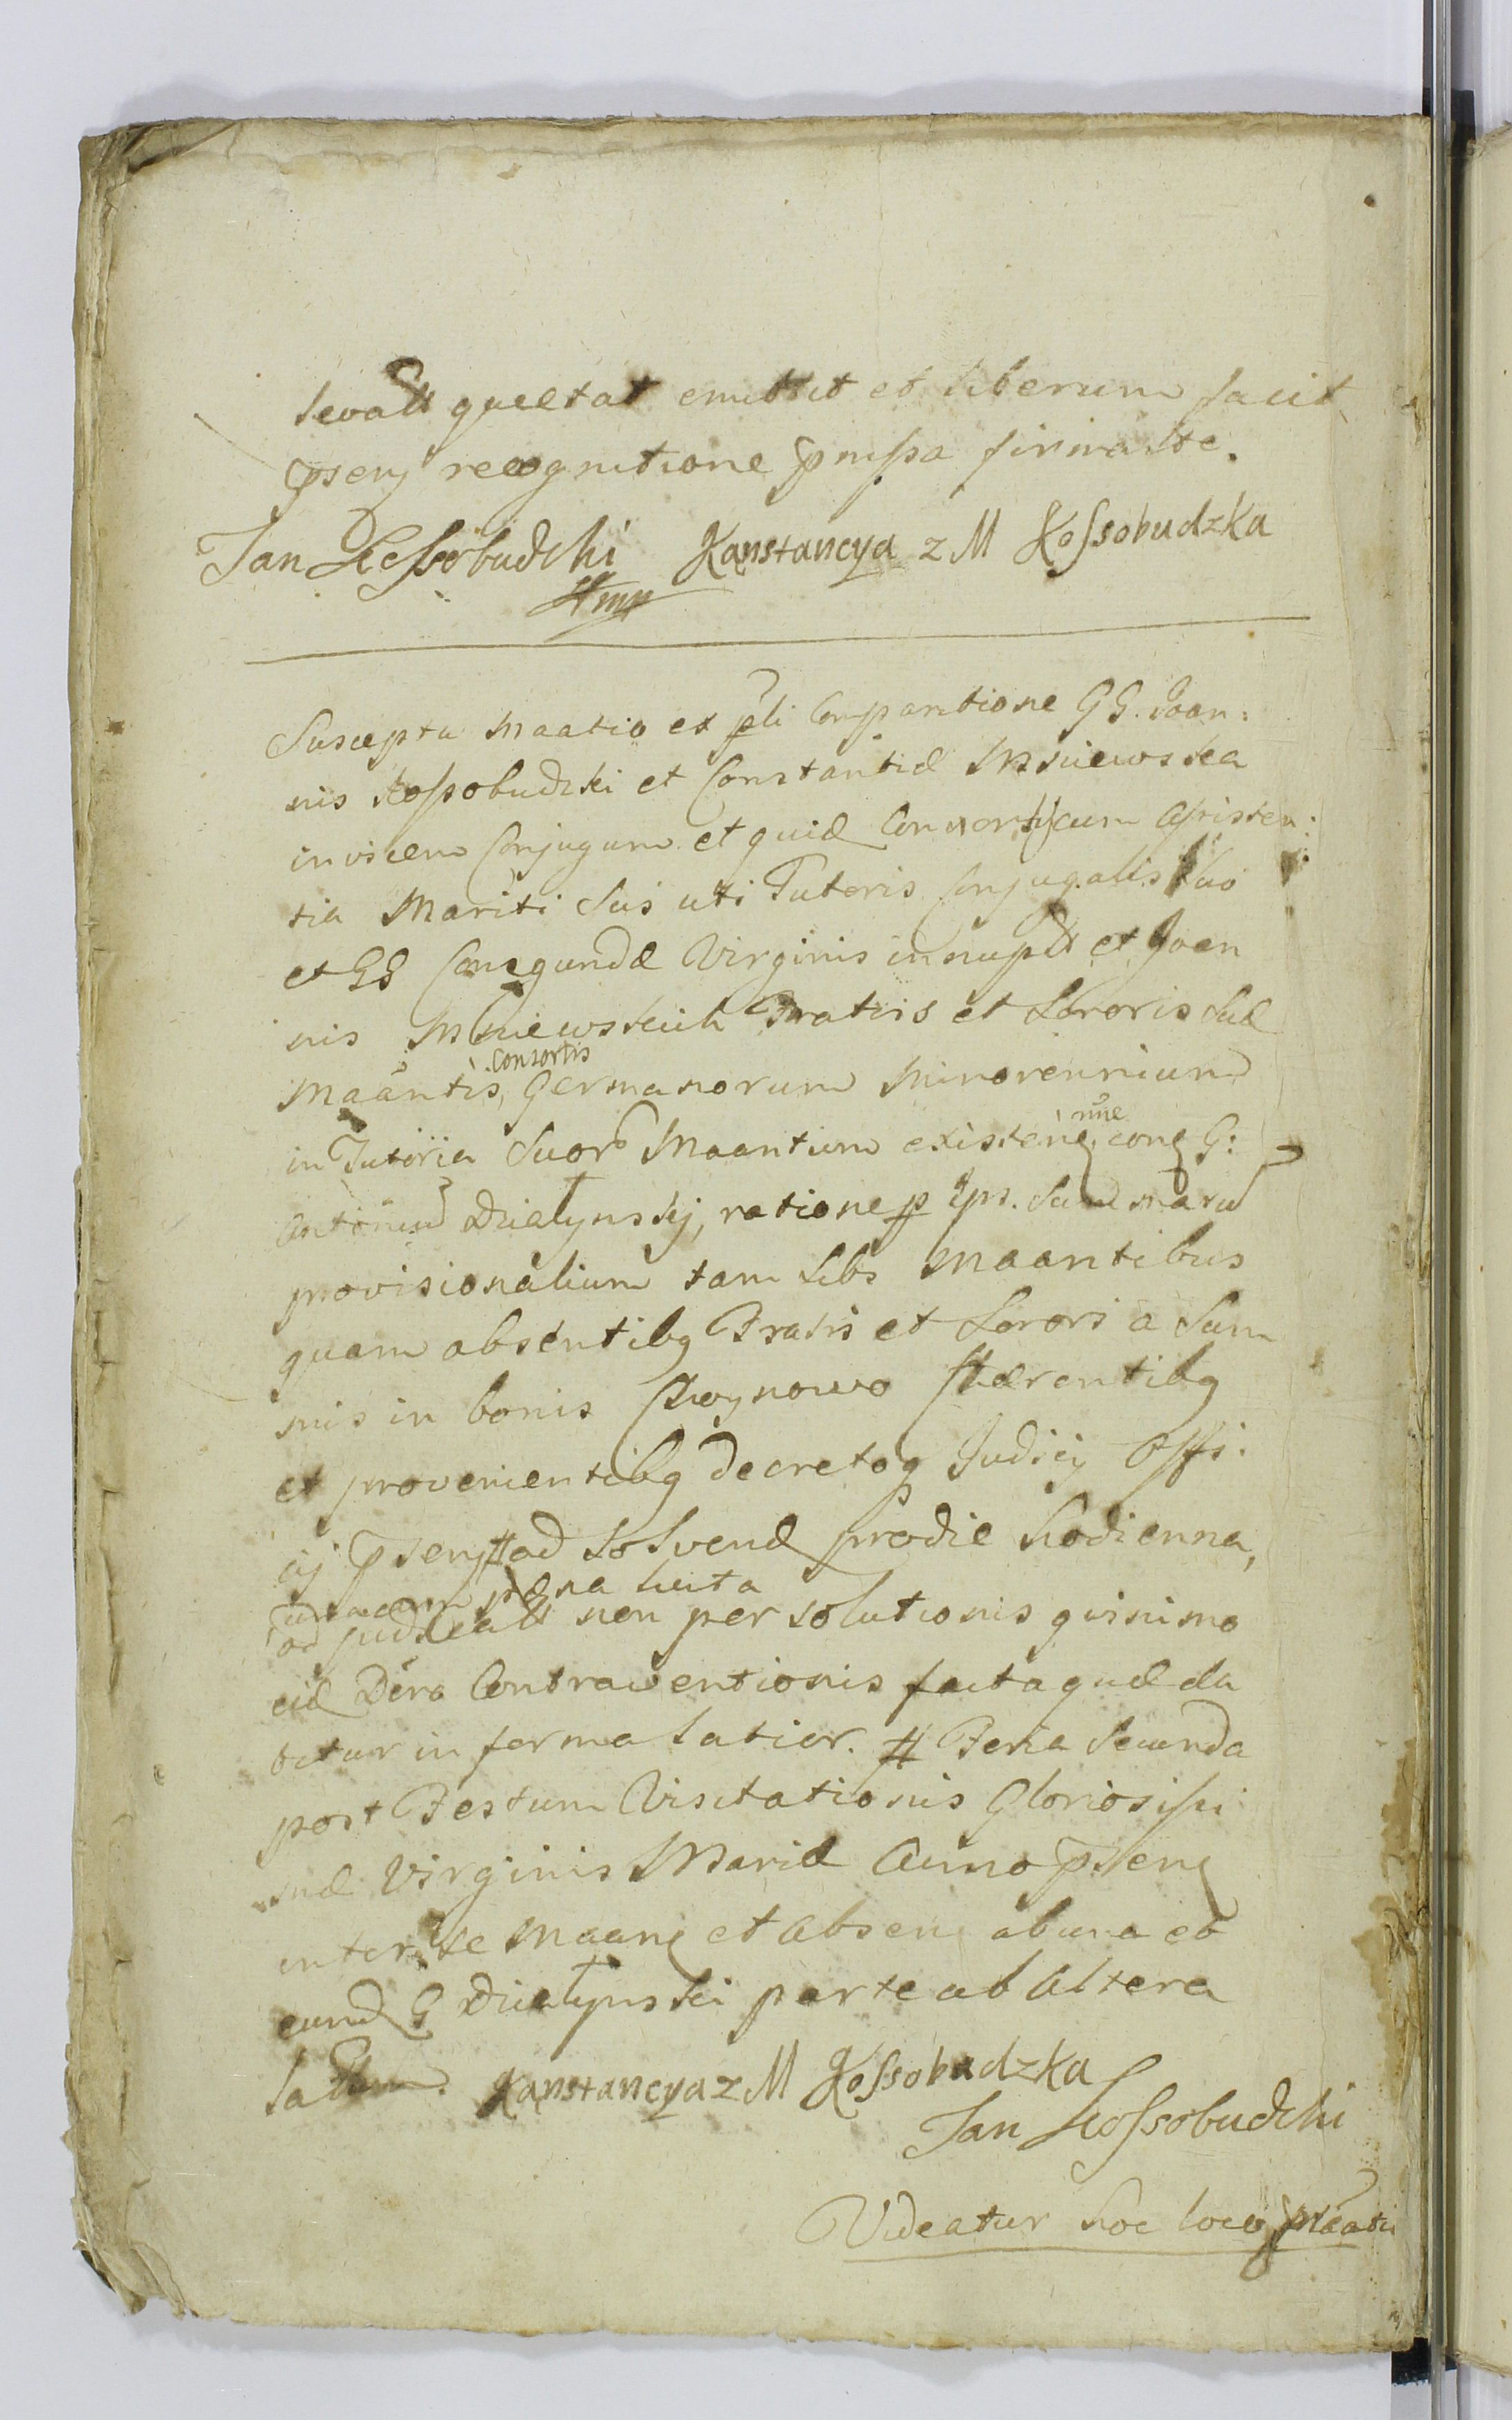 quietat emittit et liberum facit
recognitione firmante.
Jan Kossobudzki Konstancya z M Kossobudzka
Suscepta ex Comparitione GG. Joan:
nis Kossobudzki et Constantiæ Mniewska
invicem Conjugum et quid Consortis cum Assisten:
tia Mariti Sui uti Tutoris Conjugalis Suo
et GG Cunegundæ Virginis innuptæ et Joan
nis Mniewskich Fratris et Sororis Suæ
Consortis
Maantis, Germanorum Minorennium
nunc
in Tutoria Suor Maantium existen conq G:
Antonium Działynskj, ratione
provisionalium tam Sibi Maantibus
quam absentibq Fratri et Sorori a Sum
mis in bonis hærentibq
et provenientibq decretoq Judicij Offi.
cij ad Solvend prodie hodierna,
unacum pæna luita
non persolutionis quinimo
Contraventionis facta quæ da
bitur in forma latior. # Feria Secunda
post Festum Visitationis Gloriosissi
mæ Virginis Mariæ Anno
inter se Maan et Absen ab una et
eund G Działynski parte ab altera
latum. Konstancya z M Kossobudzka
Jan Kossobudzki
Videatur hoc loco